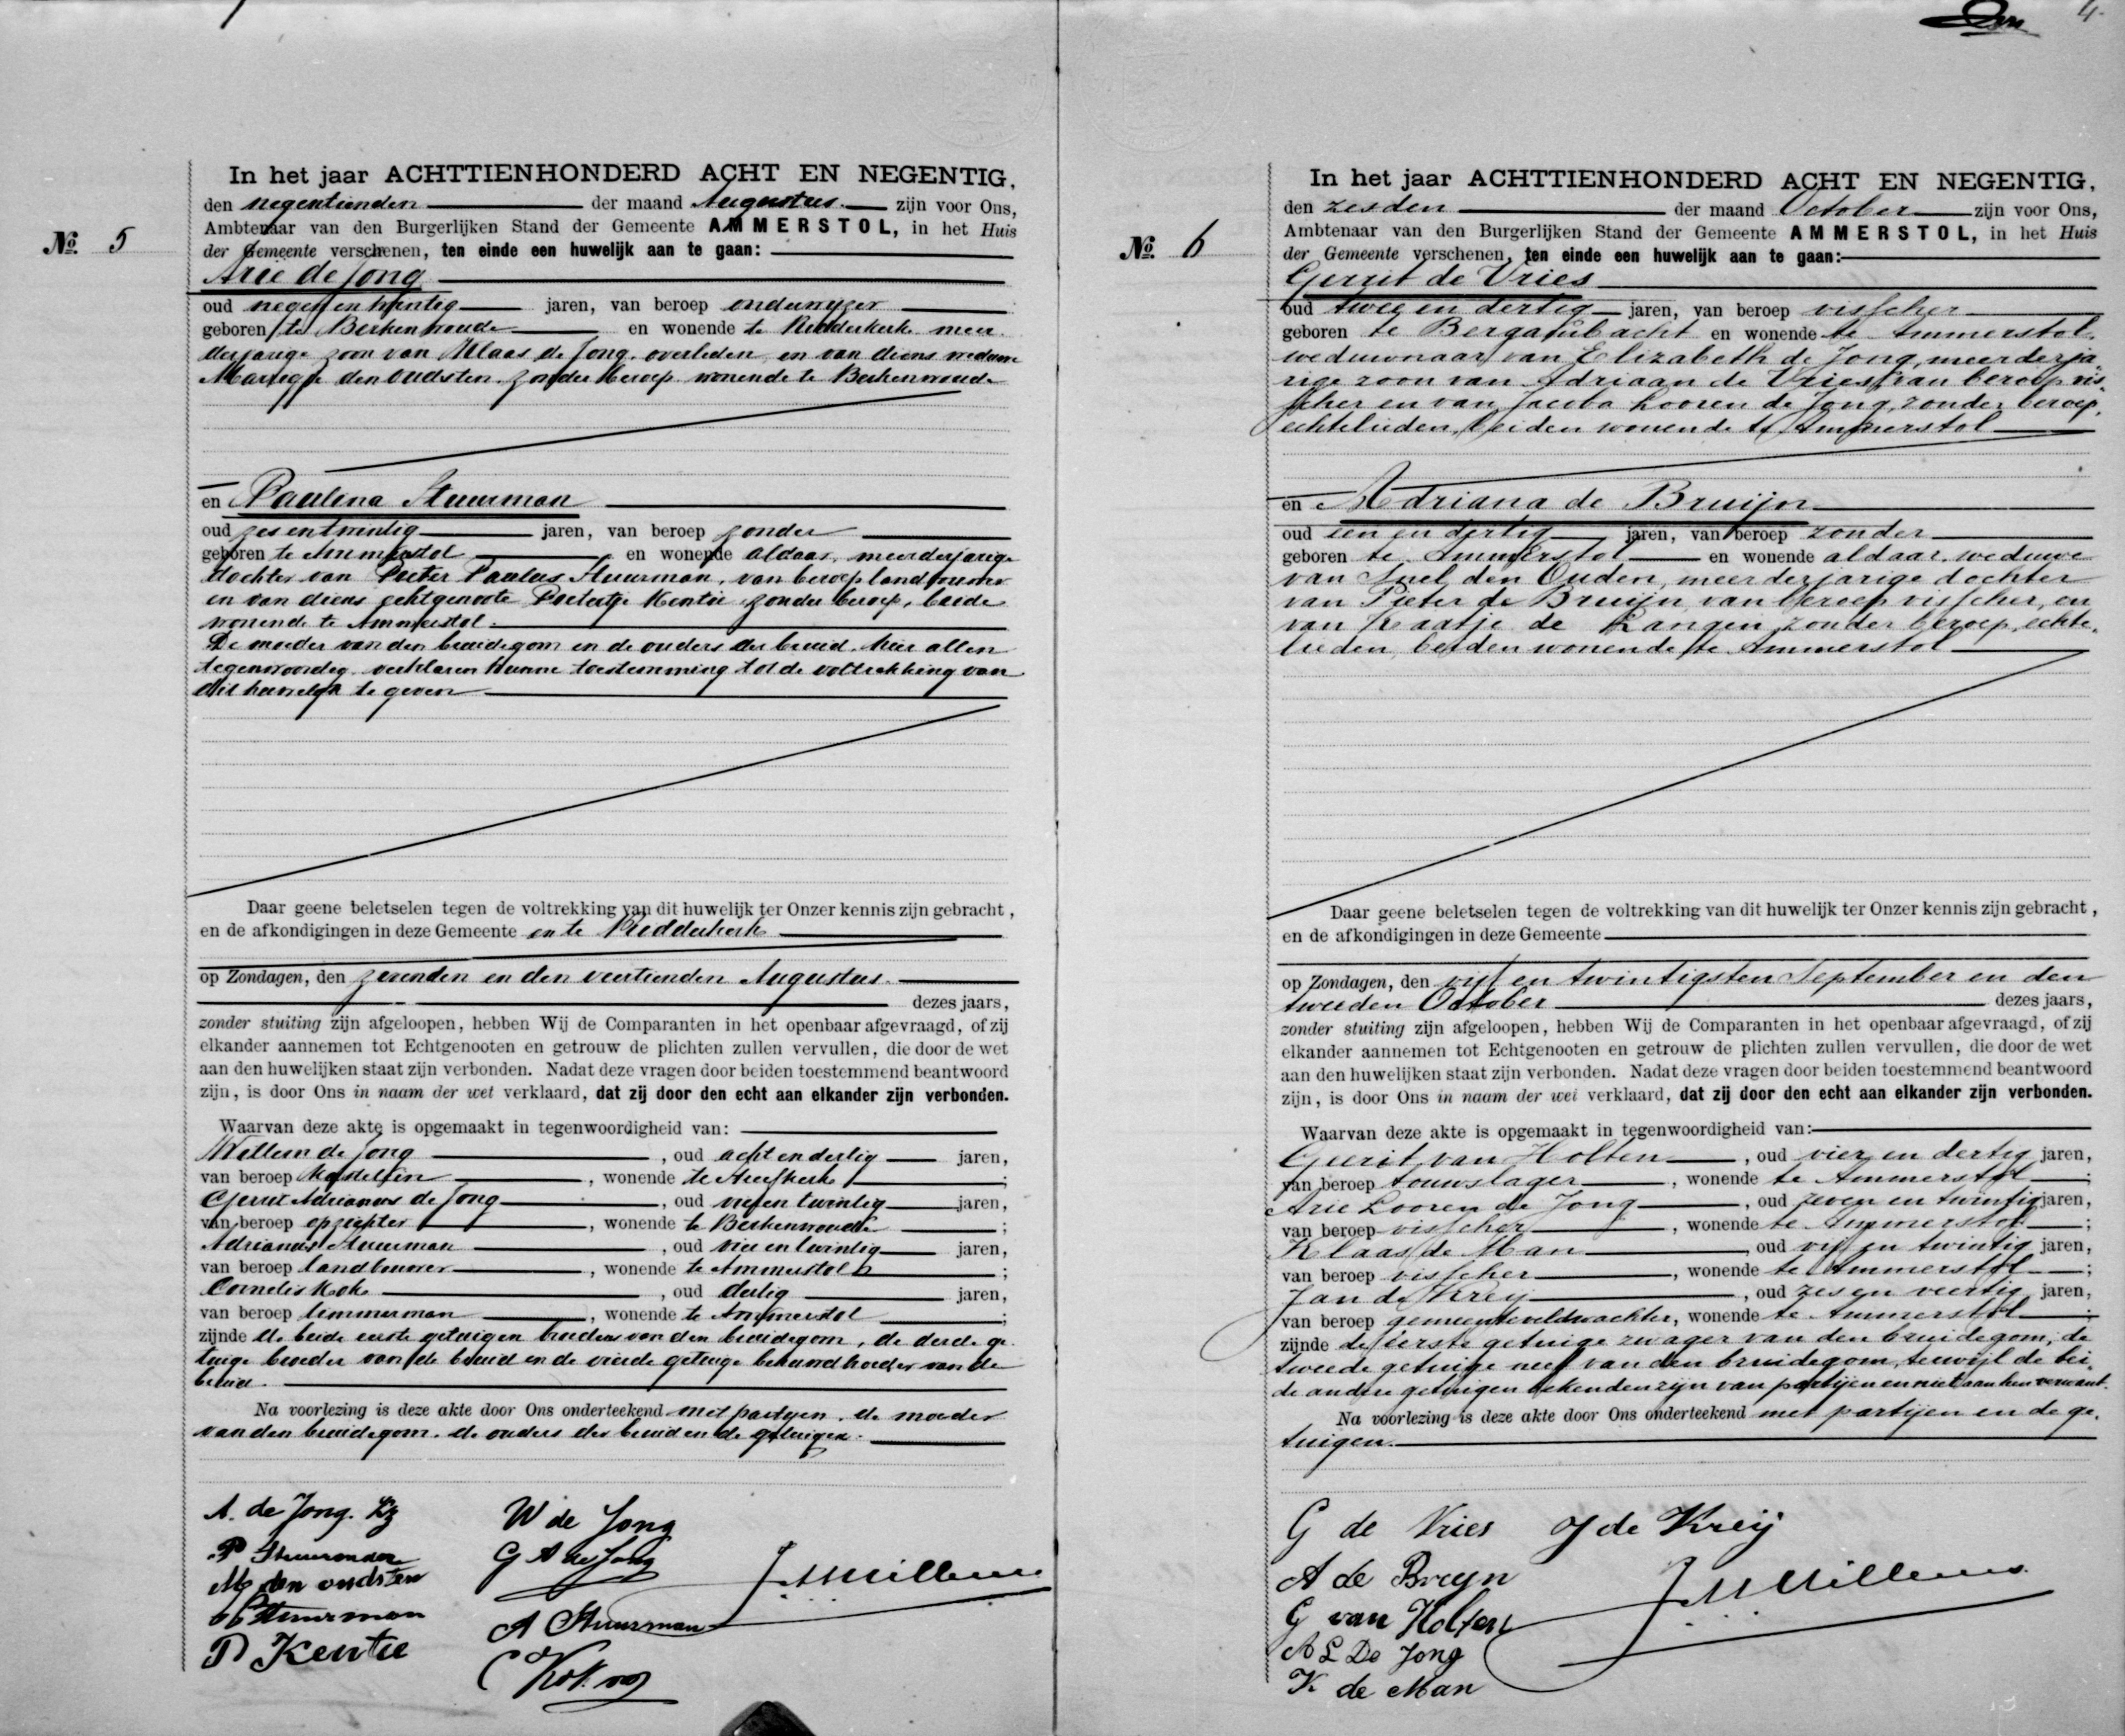 Nº 5
In het jaar ACHTTIENHONDERD ACHT EN NEGENTIG,
den negentienden der maand Augustus zijn voor Ons,
Ambtenaar van den Burgerlijken Stand der Gemeente AMMERSTOL, in het Huis
der Gemeente verschenen, ten einde een huwelijk aan te gaan:
Arie de Jong
oud negen en twintig jaren, van beroep onderwijzer
geboren te Berkenwoude en wonende te Ridderkerk meer
derjarige zoon van Klaas de Jong, overleden, en van diens weduwe
Marrigje den Oudsten, zonder beroep wonende te Berkenwoude
en Paulina Stuurman
oud zes en twintig jaren, van beroep zonder
geboren te Ammerstol en wonende aldaar, meerderjarige
dochter van Pieter Paulus Stuurman, van beroep landbouwer
en van diens echtgenoote Pietertje Kentie zonder beroep, beide
wonende te Ammerstol.
De moeder van den bruidegom en de ouders der bruid, hier allen
tegenwoordig verklaren hunne toestemming tot de voltrekking van
dit huwelijk te geven
Daar geene beletselen tegen de voltrekking van dit huwelijk ter Onzer kennis zijn gebracht,
en de afkondigingen in deze Gemeente en te Ridderkerk
op Zondagen, den zevenden en den veertienden Augustus.
dezes jaars,
zonder stuiting zijn afgeloopen, hebben Wij de Comparanten in het openbaar afgevraagd, of zij
elkander aannemen tot Echtgenooten en getrouw de plichten zullen vervullen, die door de wet
aan den huwelijken staat zijn verbonden. Nadat deze vragen door beiden toestemmend beantwoord
zijn, is door Ons in naam der wet verklaard, dat zij door den echt aan elkander zijn verbonden.
Waarvan deze akte is opgemaakt in tegenwoordigheid van:
Willem de Jong, oud acht en dertig jaren,
van beroep kastelein, wonende te Streefkerk;
Gerrit Adrianus de Jong, oud vijf en twintig jaren,
van beroep opzichter, wonende te Berkenwoude;
Adrianus Stuurman, oud vier en twintig jaren,
van beroep landbouwer, wonende te Ammerstol;
Cornelis Kok, oud dertig jaren,
van beroep timmerman, wonende te Ammerstol;
zijnde de beide eerste getuigen broeders van den bruidegom, de derde ge
tuige broeder van de bruid en de vierde getuige behuwdbroeder van de
bruid.
Na voorlezing is deze akte door Ons onderteekend met partijen, de moeder
van den bruidegom, de ouders der bruid en de getuigen.
A. de Jong. Kz
P Stuurman
M den oudsten
PP Stuurman
P Kentie
W de Jong
G A de Jong
A Stuurman
C Kok
J. M Willems
4
Nº 6
In het jaar ACHTTIENHONDERD ACHT EN NEGENTIG,
den zesden der maand October zijn voor Ons,
Ambtenaar van den Burgerlijken Stand der Gemeente AMMERSTOL, in het Huis
der Gemeente verschenen, ten einde een huwelijk aan te gaan:
Gerrit de Vries
oud twee en dertig jaren, van beroep visscher
geboren te Bergambacht en wonende te Ammerstol,
weduwnaar van Elizabeth de Jong, meerderja
rige zoon van Adriaan de Vries, van beroep vis
scher en van Jacoba Looren de Jong, zonder beroep,
echtelieden, beiden wonende te Ammerstol
en Adriana de Bruijn
oud een en dertig jaren, van beroep zonder
geboren te Ammerstol en wonende aldaar, weduwe
van Snel den Ouden, meerderjarige dochter
van Pieter de Bruijn, van beroep visscher, en
van Kaatje de Langen, zonder beroep, echte,
lieden, beiden wonende te Ammerstol
Daar geene beletselen tegen de voltrekking van dit huwelijk ter Onzer kennis zijn gebracht,
en de afkondigingen in deze Gemeente
op Zondagen, den vijf en twintigsten September en den
tweeden October dezes jaars,
zonder stuiting zijn afgeloopen, hebben Wij de Comparanten in het openbaar afgevraagd, of zij
elkander aannemen tot Echtgenooten en getrouw de plichten zullen vervullen, die door de wet
aan den huwelijken staat zijn verbonden. Nadat deze vragen door beiden toestemmend beantwoord
zijn, is door Ons in naam der wet verklaard, dat zij door den echt aan elkander zijn verbonden.
Waarvan deze akte is opgemaakt in tegenwoordigheid van:
Geerit van Holten, oud vier en dertig jaren,
van beroep touwslager, wonende te Ammerstol;
Arie Looren de Jong, oud zeven en twintig jaren,
van beroep visscher, wonende te Ammerstol;
Klaas de Man, oud vijf en twintig jaren,
van beroep visscher, wonende te Ammerstol;
Jan de Kreij, oud zes en veertig jaren,
van beroep gemeenteveldwachter, wonende te Ammerstol;
zijnde de eerste getuige zwager van den bruidegom, de
tweede getuige neef van den bruidegom, terwijl de bei,
de andere getuigen bekenden zijn van partijen en niet aan hen verwant.
Na voorlezing is deze akte door Ons onderteekend met partijen en de ge,
tuigen.
G de Vries
A de Bruyn
G van Holten
A L De Jong
K de Man
J de Kreij
J. M Willems